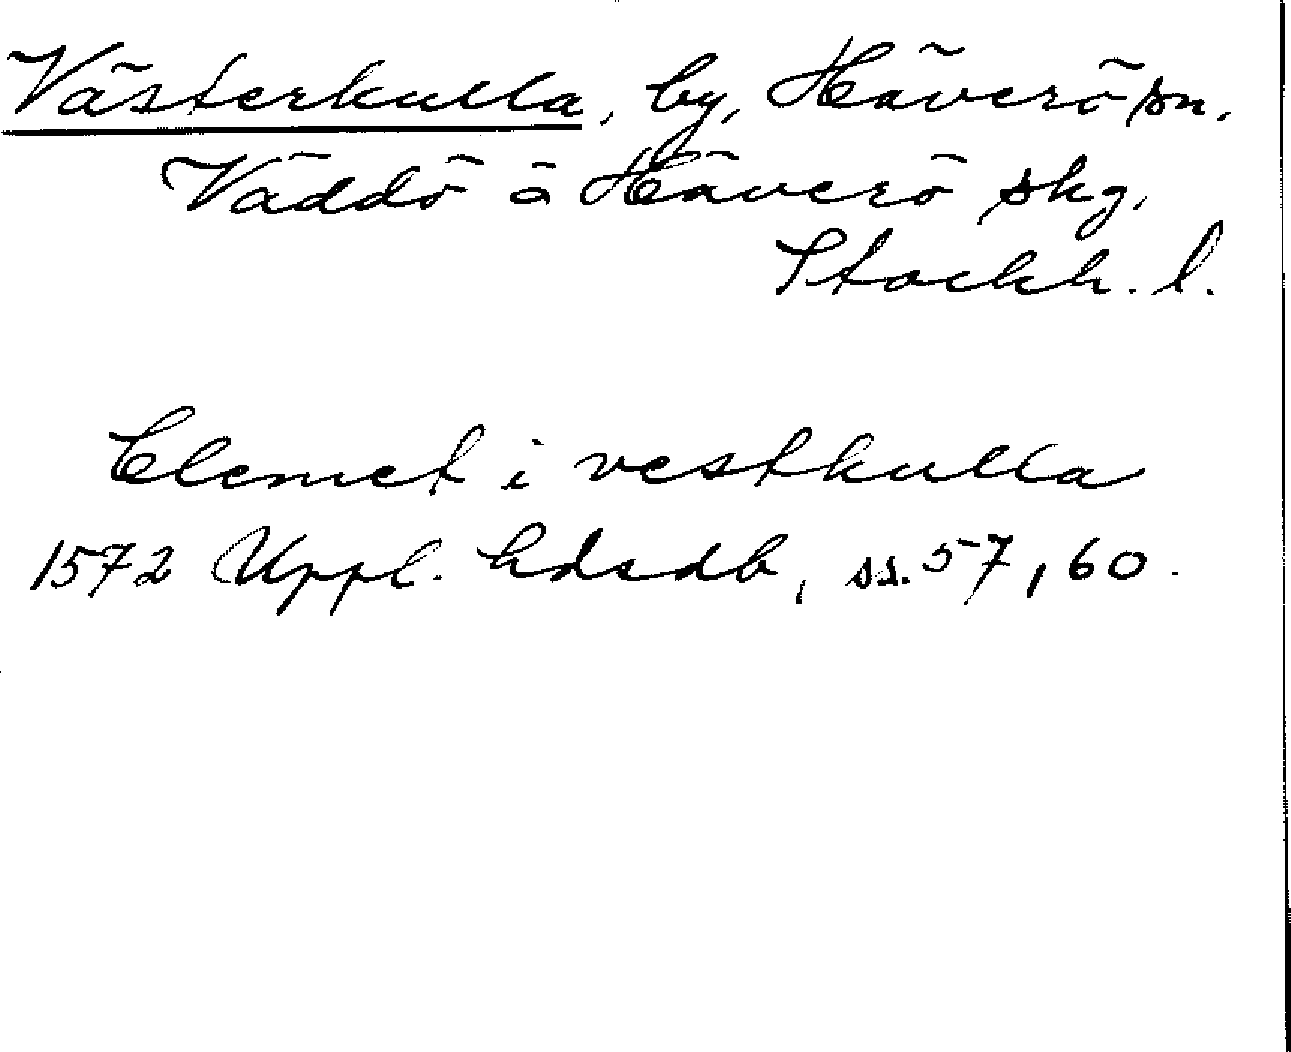 Västerkulla, by, Häverö sn.
Väddö o Häverö skg.
Stockh. l.
Clemet i vestkulla
1572 Uppl. hdsdb, ss. 57, 60.